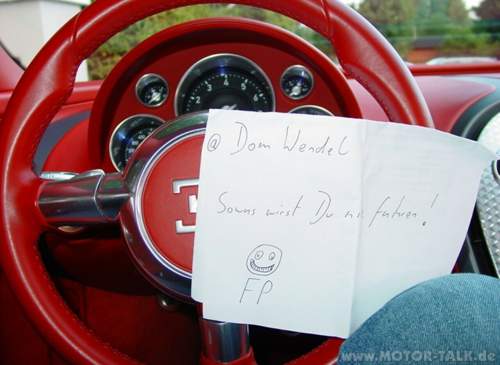 @ Dom Wendel
Sowas wirst Du nie fahren!
FP
www.MOTOR-TALK.de